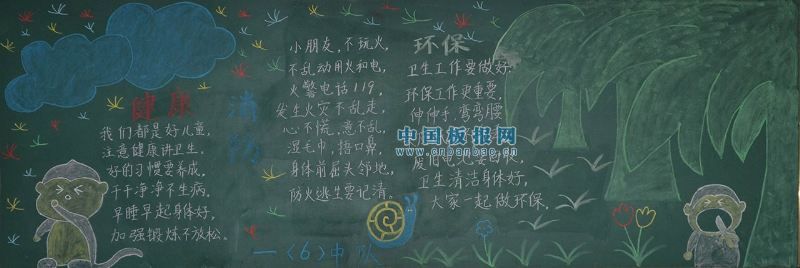 健康
我们都是好儿童,
注意健康讲卫生。
好的习惯要养成,
干干净净不生病,
早睡早起身体好,
加强锻炼不放松。
消防
小朋友,不玩火,
不乱动用火和电,
火警电话119,
发生火灾不乱走,
心不慌,意不乱,
湿毛巾,捂口鼻,
身体前屈夫邻地,
防火逃生要记清。
环保
卫生工作要做好,
环保工作更重要,
伸伸手,弯弯腰
卫生清洁身体好,
大家一起做环保。
一〈6〉中队
中国板报网
www.cnbanbao.cn